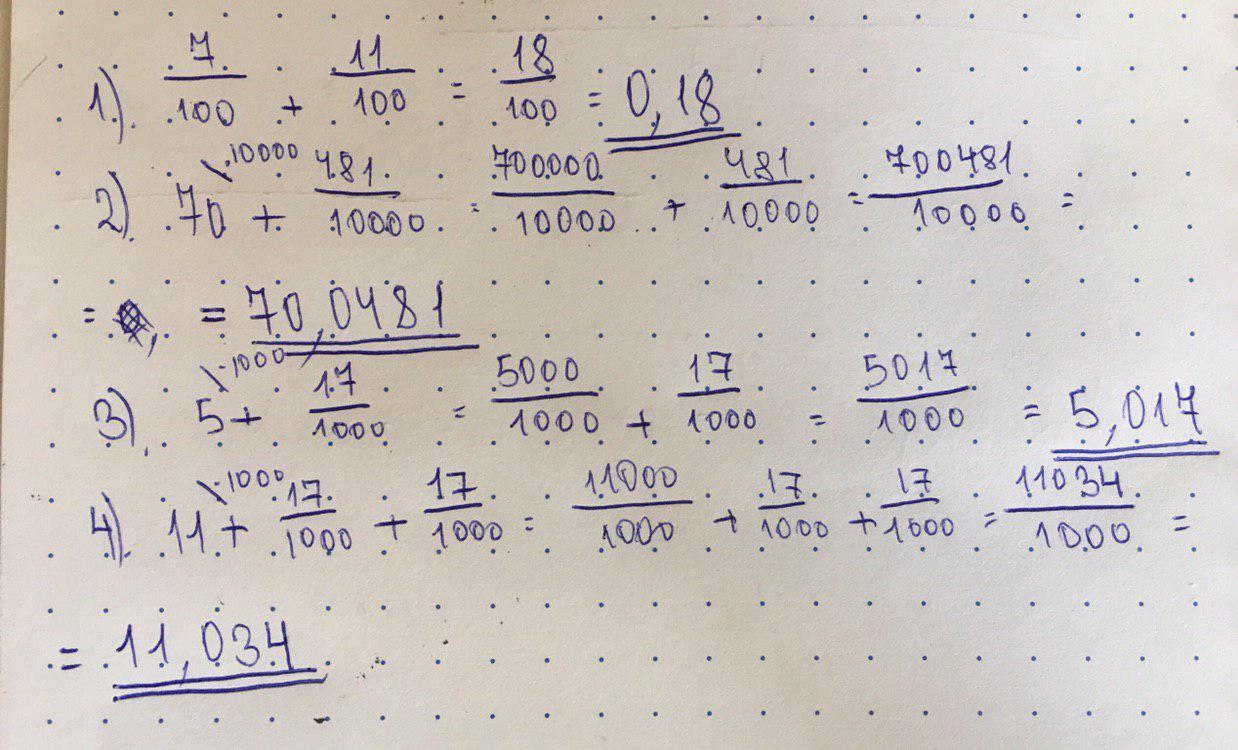 1) 7/100 + 11/100 = 18/100 = 0,18
2) 70 \·10000 + 481/10000 = 700000/10000 + 481/10000 = 700481/10000 =
= = 70,0481
3) 5 \·1000 + 17/1000 = 5000/1000 + 17/1000 = 5017/1000 = 5,017
4) 11 \·1000 + 17/1000 + 17/1000 = 11000/1000 + 17/1000 + 17/1000 = 11034/1000 =
= 11,034